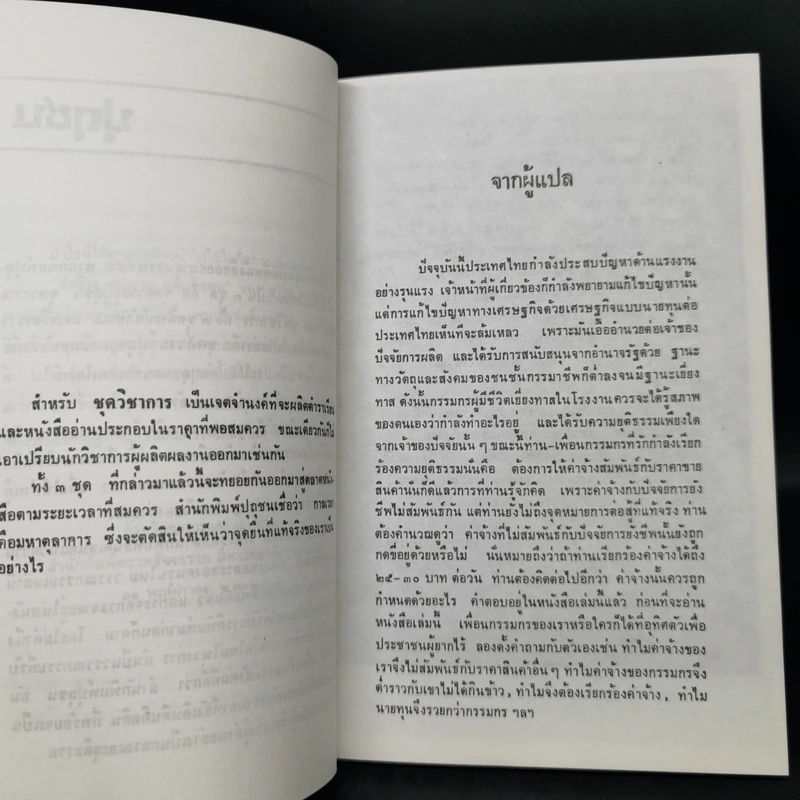 สำหรับ ชุดวิชาการ เป็นเจตจำนงค์ที่จะผลิตตำราเรียน
และหนังสืออ่านประกอบในราคาที่พอสมควร ขณะเดียวกันก็ไม่
เอาเปรียบนักวิชาการผู้ผลิตผลงานออกมาเช่นกัน
ทั้ง ๓ ชุด ที่กล่าวมาแล้วนี้จะทยอยกันออกมาสู่ตลาดหนัง-
สือตามระยะเวลาที่สมควร สำนักพิมพ์ปุถุชนเชื่อว่า กาลเวลา
คือมหาตุลาการ ซึ่งจะตัดสินให้เห็นว่าจุดยืนที่แท้จริงของเราเป็น
อย่างไร
จากผู้แปล
ปัจจุบันนี้ประเทศไทยกำลังประสบปัญหาด้านแรงงาน
อย่างรุนแรง เจ้าหน้าที่ผู้เกี่ยวข้องก็กำลังพยายามแก้ไขปัญหานั้น
แต่การแก้ไขปัญหาทางเศรษฐกิจด้วยเศรษฐกิจแบบนายทุนต่อ
ประเทศไทยเห็นที่จะล้มเหลว เพราะมันเอื้ออำนวยต่อเจ้าของ
ปัจจัยการผลิต และได้รับการสนับสนุนจากอำนาจรัฐด้วย ฐานะ
ทางวัตถุและสังคมของชนชั้นกรรมาชีพก็ต่ำลงจนมีฐานะเยี่ยง
ทาส ดังนั้นกรรมกรผู้มีชีวิตเยี่ยงทาสในโรงงานควรจะได้รู้สภาพ
ของตนเองว่ากำลังทำอะไรอยู่ และได้รับความยุติธรรมเพียงใด
จากเจ้าของปัจจัยนั้น ๆ ขณะนี้ท่าน-เพื่อนกรรมกรที่รักกำลังเรียก
ร้องความยุติธรรมนั่นคือ ต้องการให้ค่าจ้างสัมพันธ์กับราคาขาย
สินค้านั่นก็ดีแล้วการที่ท่านรู้จักคิด เพราะค่าจ้างกับปัจจัยการยัง
ชีพไม่สัมพันธ์กัน แต่ท่านยังไม่ถึงจุดหมายการต่อสู้ที่แท้จริง ท่าน
ต้องคำนวณดูว่า ค่าจ้างที่ไม่สัมพันธ์กับปัจจัยการยังชีพนั้นยังถูก
กดขี่อยู่ด้วยหรือไม่ นั่นหมายถึงว่าถ้าท่านเรียกร้องค่าจ้างได้ถึง
๒๕-๓๐ บาท ต่อวัน ท่านต้องคิดต่อไปอีกว่า ค่าจ้างนั้นควรถูก
กำหนดด้วยอะไร คำตอบอยู่ในหนังสือเล่มนี้แล้ว ก่อนที่จะอ่าน
หนังสือเล่มนี้ เพื่อนกรรมกรของเราหรือใครก็ได้ที่อุทิศตัวเพื่อ
ประชาชนผู้ยากไร้ ลองตั้งคำถามกับตัวเองเช่น ทำไมค่าจ้างของ
เราจึงไม่สัมพันธ์กับราคาสินค้าอื่นๆ ทำไมค่าจ้างของกรรมกรจึง
ต่ำราวกับเขาไม่ได้กินข้าว, ทำไมจึงต้องเรียกร้องค่าจ้าง, ทำไม
นายทุนจึงรวยกว่ากรรมกร ฯลฯ